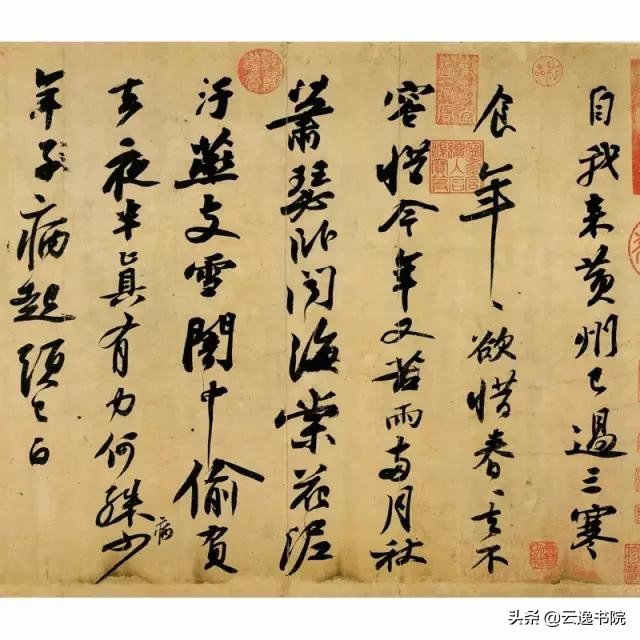 自我来黄州已過三寒
食年〻欲惜春〻去不
容惜今年又苦雨兩月秋
蕭瑟卧聞海棠花泥
汙燕支雪闇中偷負
去夜半真有力何殊少
病
年子病起頭已白
头条 @云逸书院